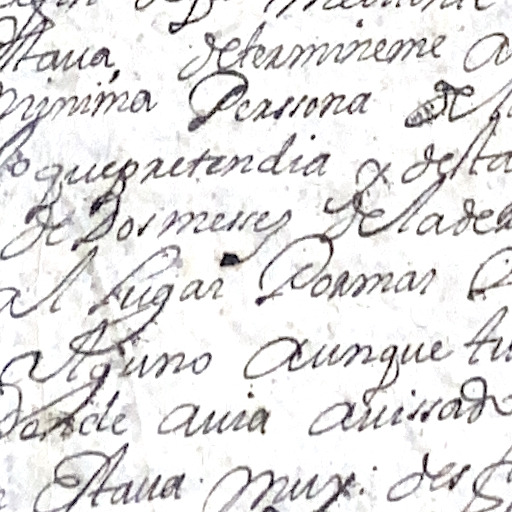 Estaua determineme a
minima Perssona de
lo que pretendia y desta
de Dos messes de la de
al lugar Por mar
Alguno aunque tu
donde auia auissado
Estaua muy des